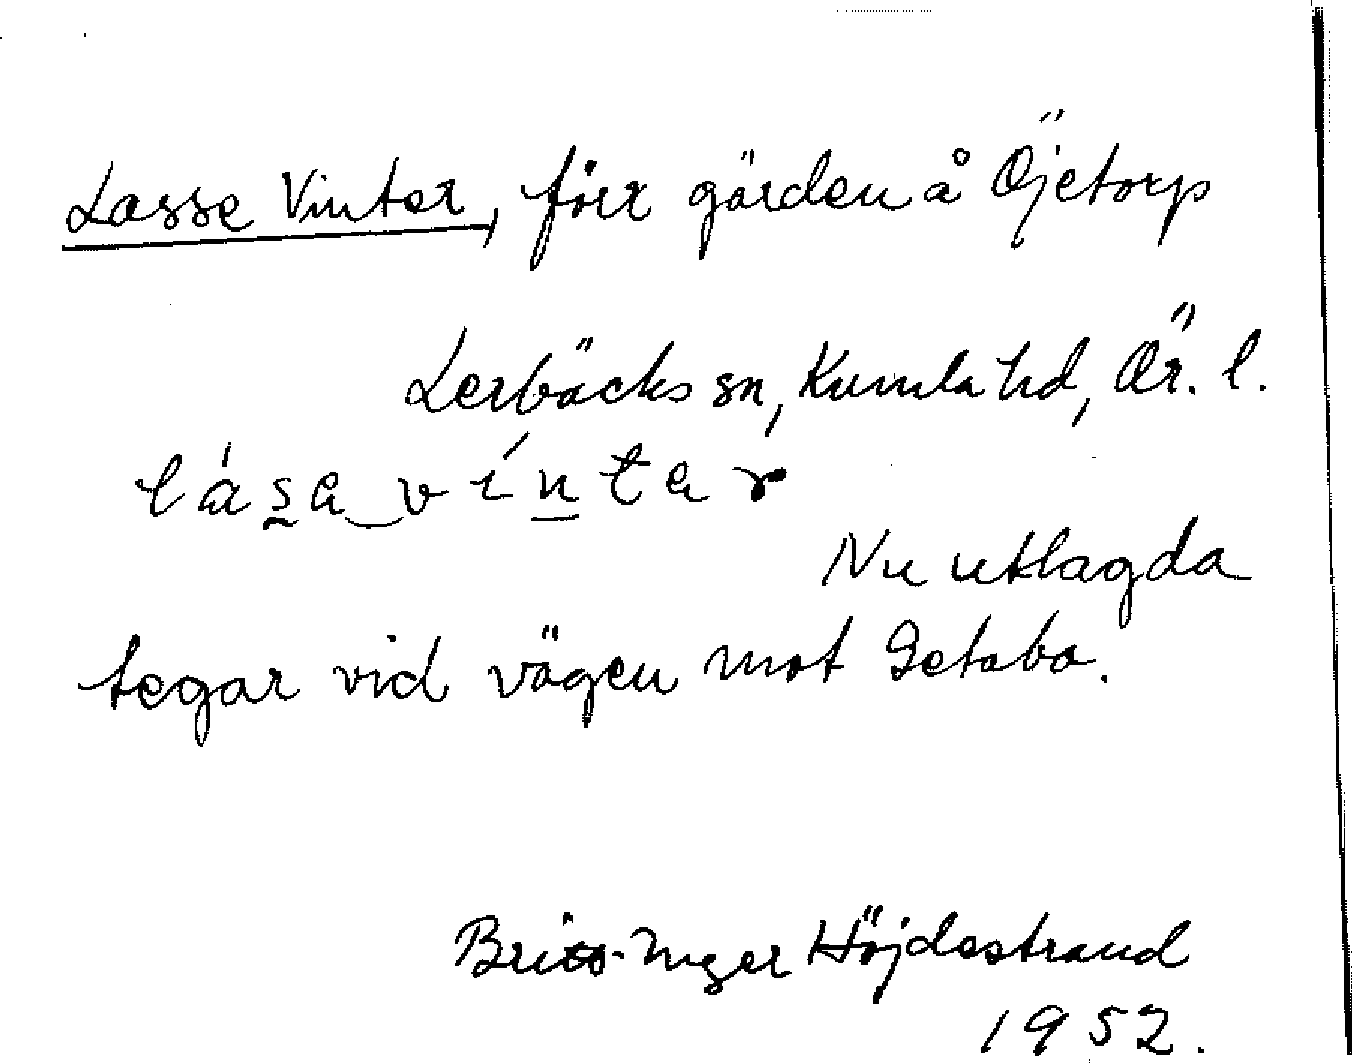 Lasse Vinter, förr gärden å Öjetorp
Lerbäcks sn, Kumla hd, Ör. l.
lása vínter
Nu utlagda
tegar vid vägen mot Getabo.
Britt-Inger Höjdestrand
1952.